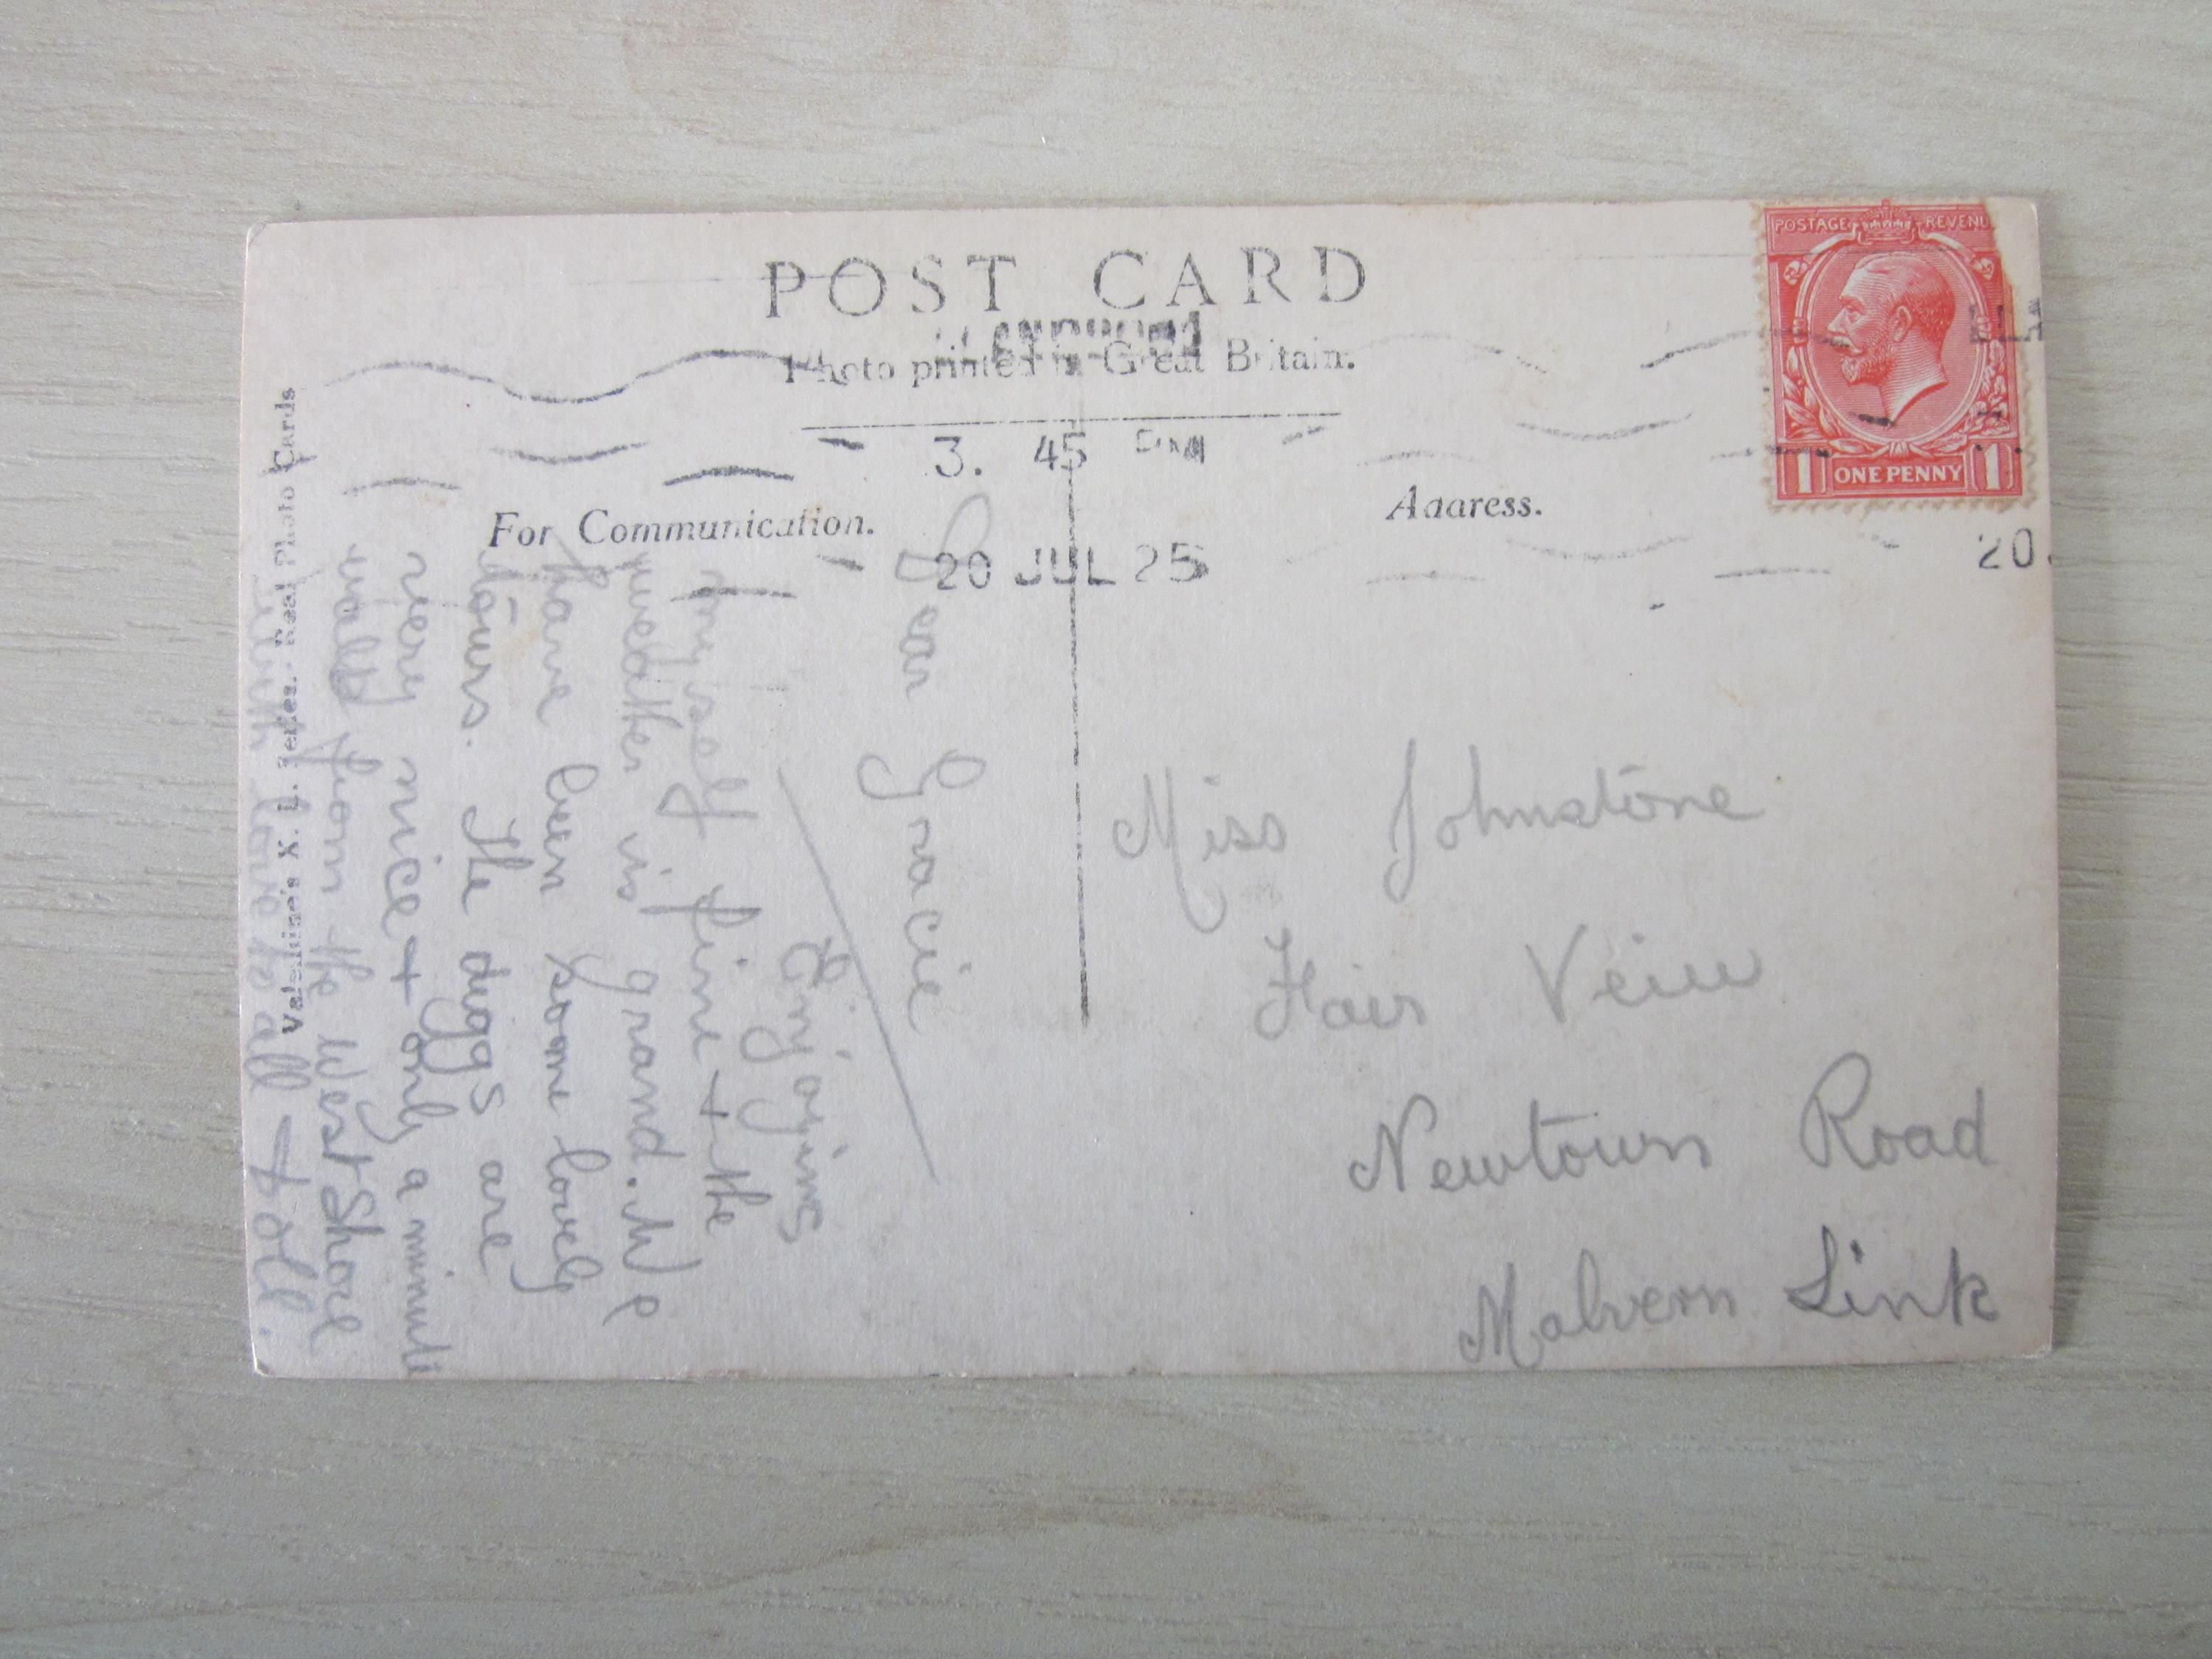 POST CARD
Photo printed in Great Britain.
3. 45 PM
20 JUL 25
For Communication.
Address.
POSTAGE REVENU
1 ONE PENNY 1
20
Valentine's X. L. Series. Real Photo Cards
Dear Gracie
Enjoying
myself fine + the
weather is grand. We
have been some lovely
tours. The diggs are
very nice + only a minute
walk from the West Shore
with love to all + Doll.
Miss Johnstone
Fair Veiw
Newtown Road
Malvern Link